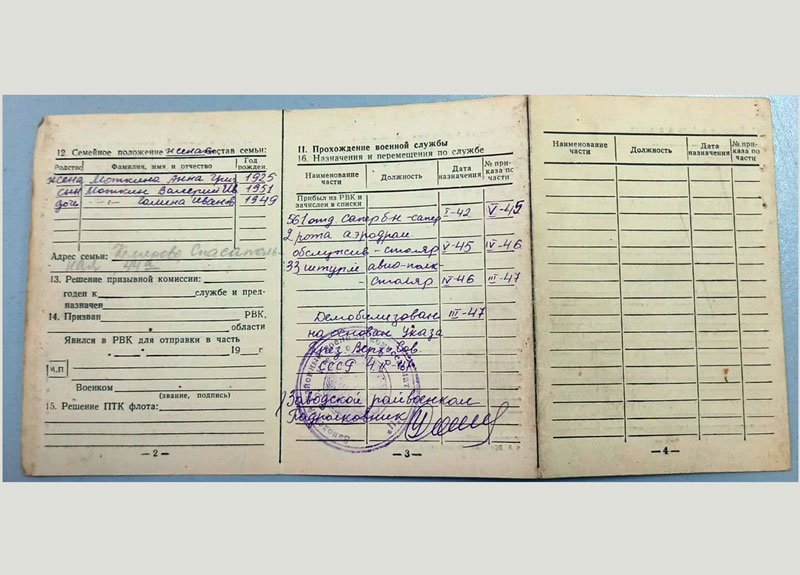 12. Семейное положение женат состав семьи:
Родство Фамилия, имя и отчество Год рожден.
жена Моткина Анна Григ 1925
сын Моткин Валерий Ив 1951
доч -"- Галина Иванов 1949
Адрес семьи: Кемерово Спасательная
13. Решение призывной комиссии:
годен к службе и пред-
назначен
14. Призван РВК,
области
Явился в РВК для отправки в часть
19 г
м.п
Военком
(звание, подпись)
15. Решение ПТК флота:
— 2 —
II. Прохождение военной службы
16. Назначения и перемещения по службе
Наименование части Должность Дата назначения № приказа по части
Прибыл из РВК и
зачислен в списки
561 отд сапер б-н - сапер I-42 V-45
2 рота аэродром
обслужив - столяр V-45 IV-46
33 штурм авио-полк
- столяр IV-46 III-47
Демобилизован III-47
на основан Указа
През Верх. Сов.
СССР
Заводской райвоенком
Подполковник
— 3 —
Наименование части Должность Дата назначения № приказа по части
— 4 —